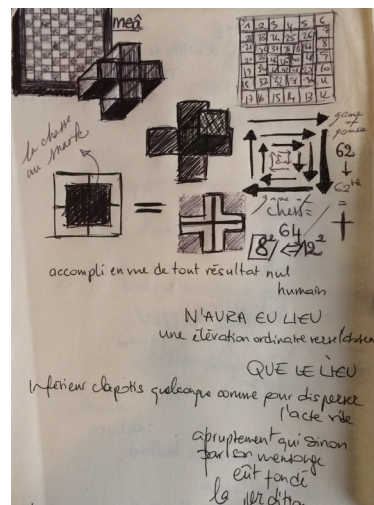 meâ
1 2 3 4 5 6
la chasse
au snark
game of
goose
62
=
game of
chess =
64
8² 12²
accompli en vue de tout résultat nul
humain
N'AURA EU LIEU
une élévation ordinaire verse l'absence
QUE LE LIEU
inférieur clapotis quelconque comme pour disperser
l'acte vide
abruptement qui sinon
par son mensonge
eût fondé
la perdition